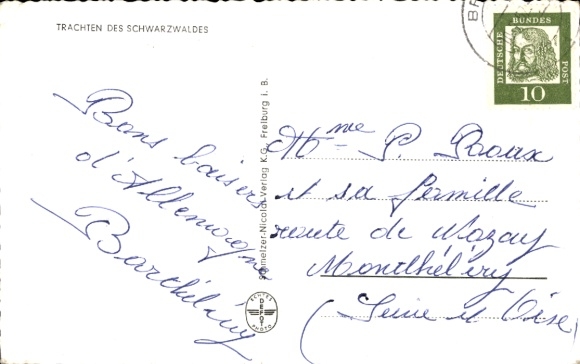 TRACHTEN DES SCHWARZWALDES
Bons baisers
d'Allemagne
Barthélémy
Schmelzer-Nicolai-Verlag K.G. Freiburg i. B.
ECHTES
DEFOT
PHOTO
DEUTSCHE
BUNDES
POST
10
Mme P. Roux
et sa famille
route de Nozay
Montlhéléry
(Seine et Oise)